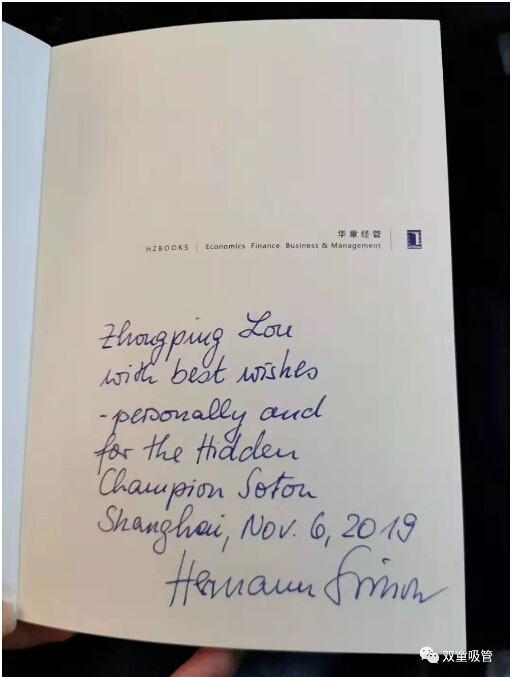 华章经管
HZBOOKS | Economics Finance Business & Management
Zhongping Lou
with best wishes
-personally and
for the Hidden
Champion Soton
Shanghai, Nov. 6, 2019
Hermann Simon
双童吸管